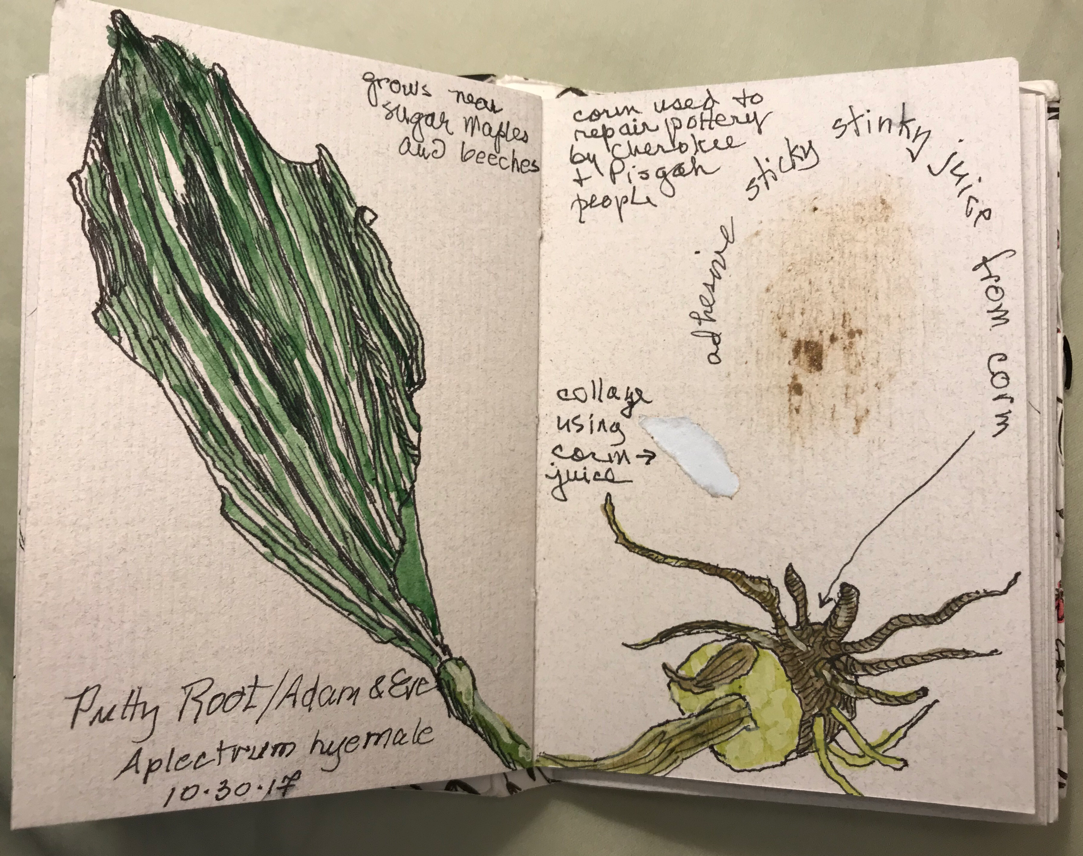 grows near
sugar maples
and beeches
Putty Root/Adam & Eve
Aplectrum hyemale
10.30.17
corm used to
repair pottery
by Cherokee
+ Pisgah
people
adhesive sticky stinky juice from corm
collage
using
corm →
juice